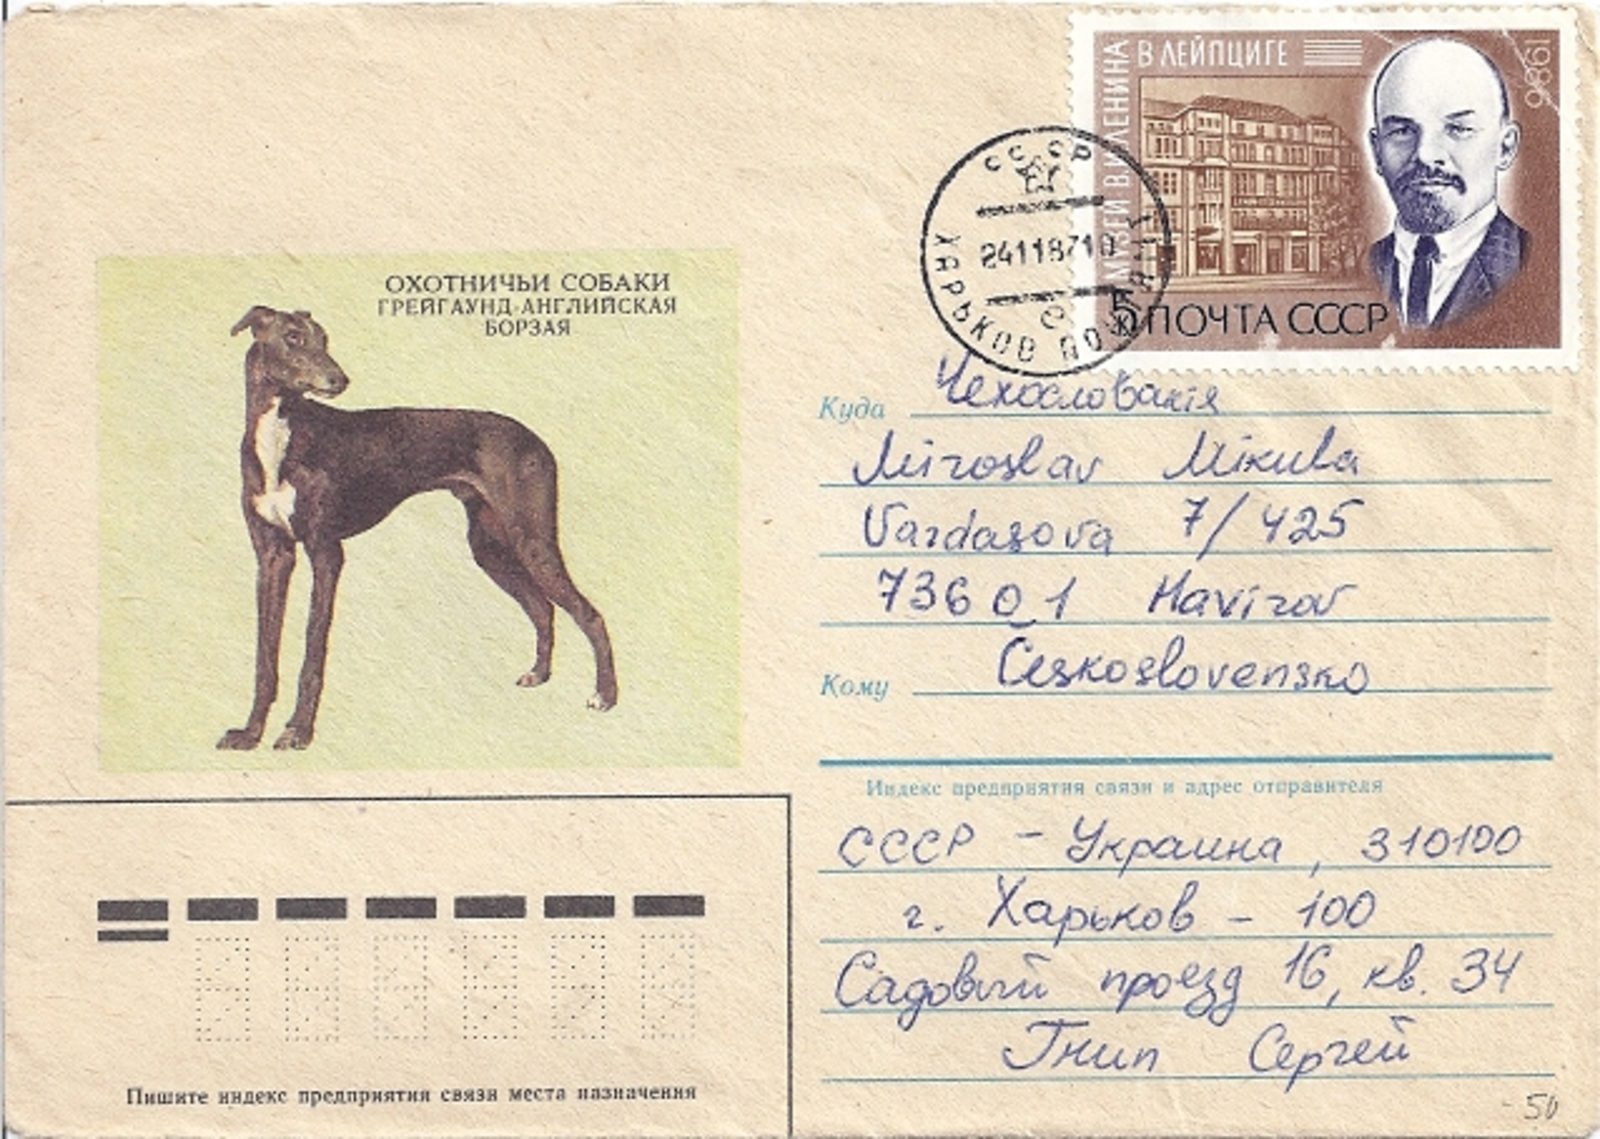 МУЗЕЙ В.И.ЛЕНИНА
В ЛЕЙПЦИГЕ
1986
5К ПОЧТА СССР
СССР
241187 10
ХАРЬКОВ
ОХОТНИЧЬИ СОБАКИ
ГРЕЙГАУНД-АНГЛИЙСКАЯ
БОРЗАЯ
Куда Чехословакія
Miroslav Mikula
Vardasova 7/425
736 0 1 Havirov
Кому Československo
Индекс предприятия связи и адрес отправителя
СССР - Украина, 310100
г. Харьков - 100
Садовый проезд 16, кв. 34
Гнип Сергей
Пишите индекс предприятия связи места назначения
-50